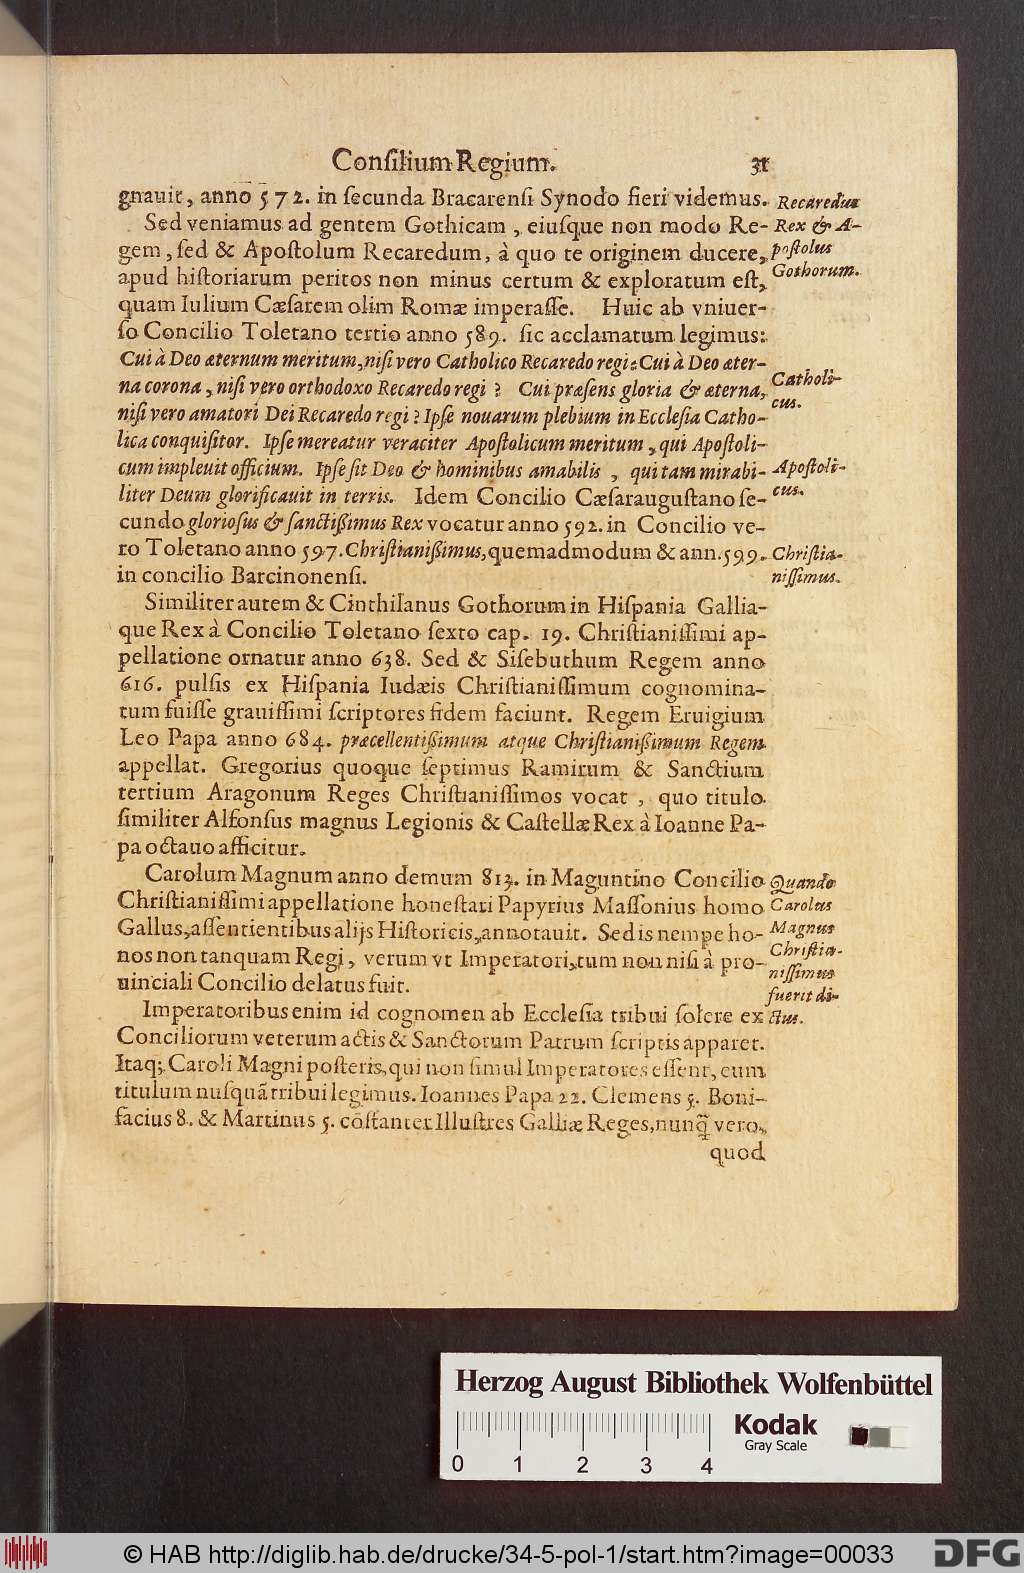 Conſilium Regium. 31
gnauit, anno 572. in ſecunda Bracarenſi Synodo fieri videmus.
Sed veniamus ad gentem Gothicam, eiuſque non modo Re-
gem, ſed & Apoſtolum Recaredum, à quo te originem ducere,
apud hiſtoriarum peritos non minus certum & exploratum eſt,
quam Iulium Cæſarem olim Romæ imperaſſe. Huic ab vniuer-
ſo Concilio Toletano tertio anno 589. ſic acclamatum legimus:
Cui à Deo æternum meritum, niſi vero Catholico Recaredo regi? Cui à Deo æter-
na corona, niſi vero orthodoxo Recaredo regi? Cui præſens gloria & æterna,
niſi vero amatori Dei Recaredo regi? Ipſe nouarum plebium in Eccleſia Catho-
lica conquiſitor. Ipſe mereatur veraciter Apoſtolicum meritum, qui Apoſtoli-
cum impleuit officium. Ipſe ſit Deo & hominibus amabilis, qui tam mirabi-
liter Deum glorificauit in terris. Idem Concilio Cæſarauguſtano ſe-
cundo glorioſus & ſanctißimus Rex vocatur anno 592. in Concilio ve-
ro Toletano anno 597. Chriſtianißimus, quemadmodum & ann. 599.
in concilio Barcinonenſi.
Similiter autem & Cinthilanus Gothorum in Hiſpania Gallia-
que Rex à Concilio Toletano ſexto cap. 19. Chriſtianiſſimi ap-
pellatione ornatur anno 638. Sed & Siſebuthum Regem anno
616. pulſis ex Hiſpania Iudæis Chriſtianiſſimum cognomina-
tum fuiſſe grauiſſimi ſcriptores fidem faciunt. Regem Eruigium
Leo Papa anno 684. præcellentißimum atque Chriſtianißimum Regem
appellat. Gregorius quoque ſeptimus Ramirum & Sanctium
tertium Aragonum Reges Chriſtianiſſimos vocat, quo titulo
ſimiliter Alfonſus magnus Legionis & Caſtellæ Rex à Ioanne Pa-
pa octauo afficitur.
Carolum Magnum anno demum 813. in Maguntino Concilio
Chriſtianiſſimi appellatione honeſtari Papyrius Maſſonius homo
Gallus, aſſentientibus alijs Hiſtoricis, annotauit. Sed is nempe ho-
nos non tanquam Regi, verum vt Imperatori, tum non niſi à pro-
uinciali Concilio delatus fuit.
Imperatoribus enim id cognomen ab Eccleſia tribui ſolere ex
Conciliorum veterum actis & Sanctorum Patrum ſcriptis apparet.
Itaq; Caroli Magni poſteris, qui non ſimul Imperatores eſſent, eum
titulum nuſquã tribui legimus. Ioannes Papa 22. Clemens 5. Boni-
facius 8. & Martinus 5. cõſtanter Illuſtres Galliæ Reges, nunq̃ vero,
quod
Recaredus
Rex & A-
poſtolus
Gothorum.
Catholi-
cus.
Apoſtoli-
cus.
Chriſtia-
niſſimus.
Quando
Carolus
Magnus
Chriſtia-
niſſimus
fuerit di-
ctus.
Herzog August Bibliothek Wolfenbüttel
0 1 2 3 4
Kodak
Gray Scale
© HAB http://diglib.hab.de/drucke/34-5-pol-1/start.htm?image=00033
DFG